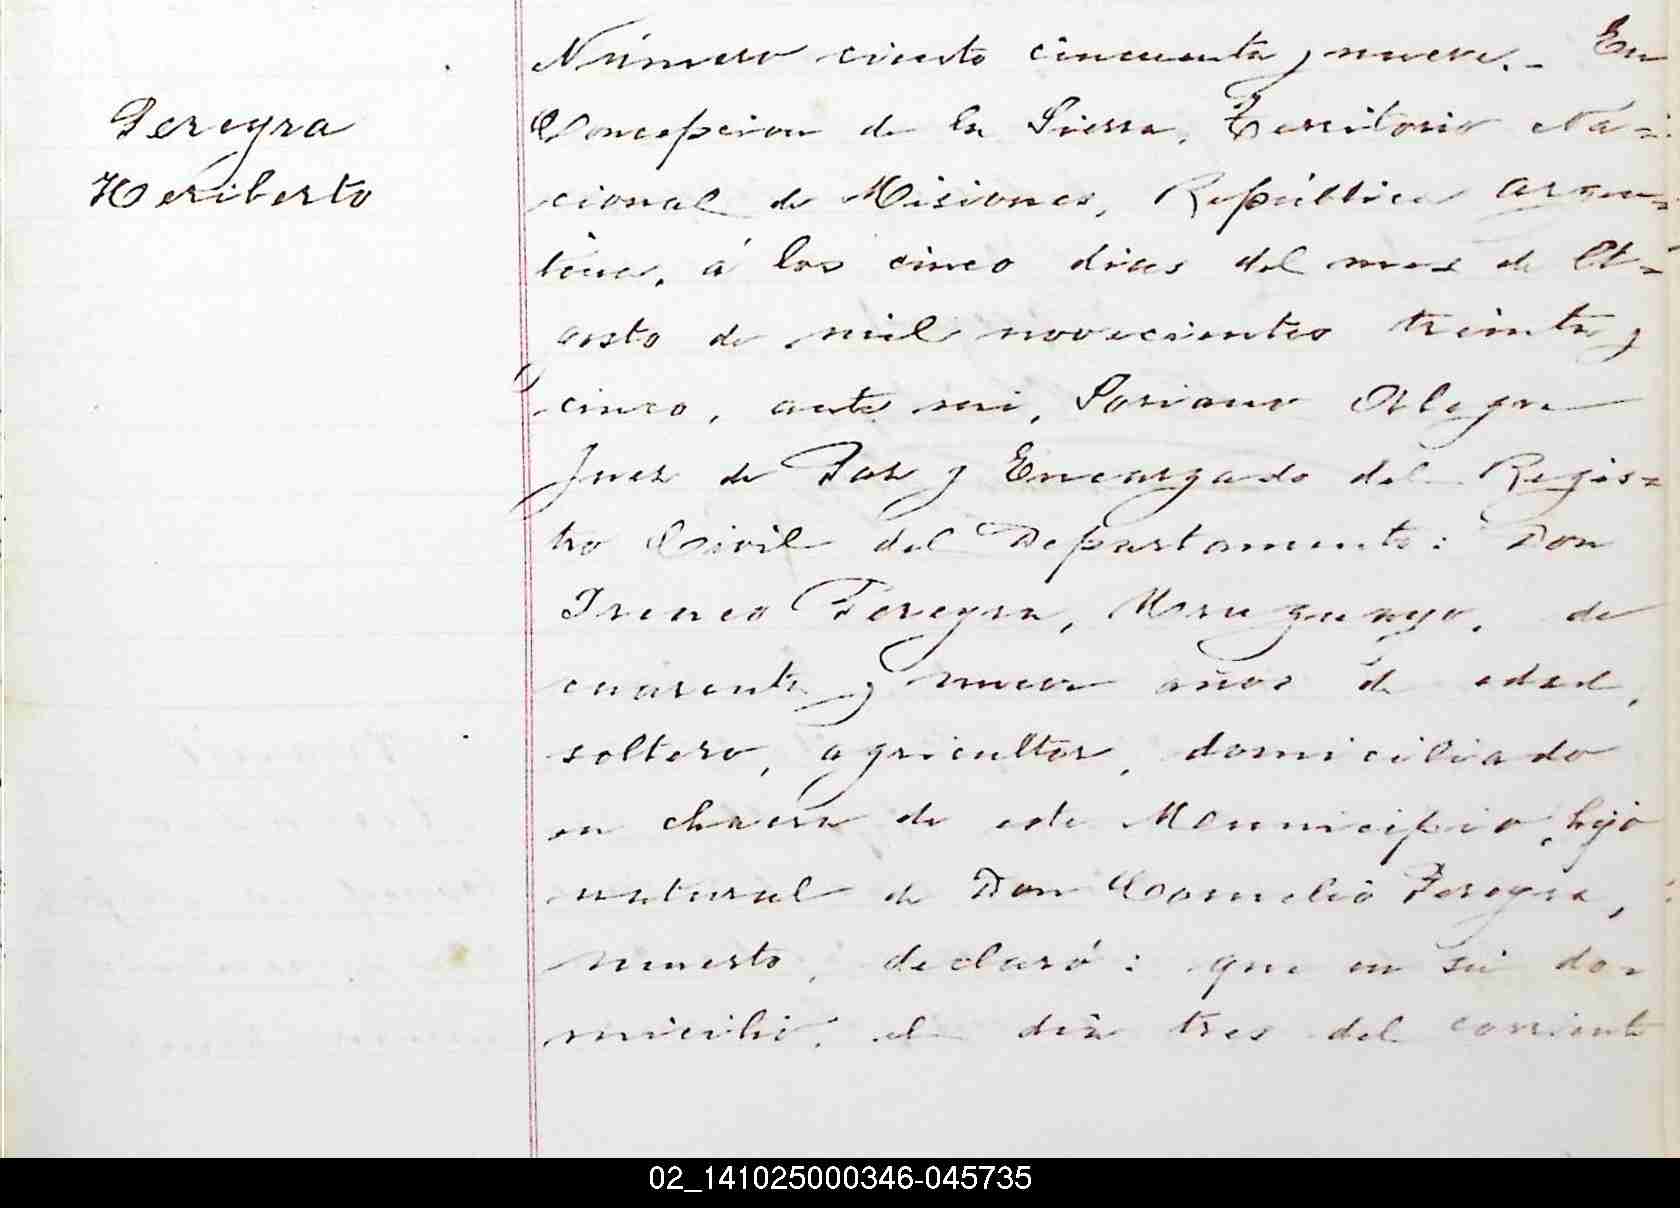 Pereyra
Heriberto
Número ciento cincuenta y nueve.- En
Concepcion de la Sierra, Territorio Na=
cional de Misiones, República Argen=
tina, á los cinco dias del mes de A=
gosto de mil novecientos treinta y
cinco, ante mi, Soriano Alegre
Juez de Paz y Encargado del Regis=
tro Civil del Departamento: Don
Ireneo Pereyra, Uruguayo, de
cuarenta y nueve años de edad,
soltero, agricultor, domiciliado
en chacra de este Municipio, hijo
natural de Don Cornelio Pereyra,
muerto, declaró: que en su do=
micilio, el dia tres del corriente
02_141025000346-045735